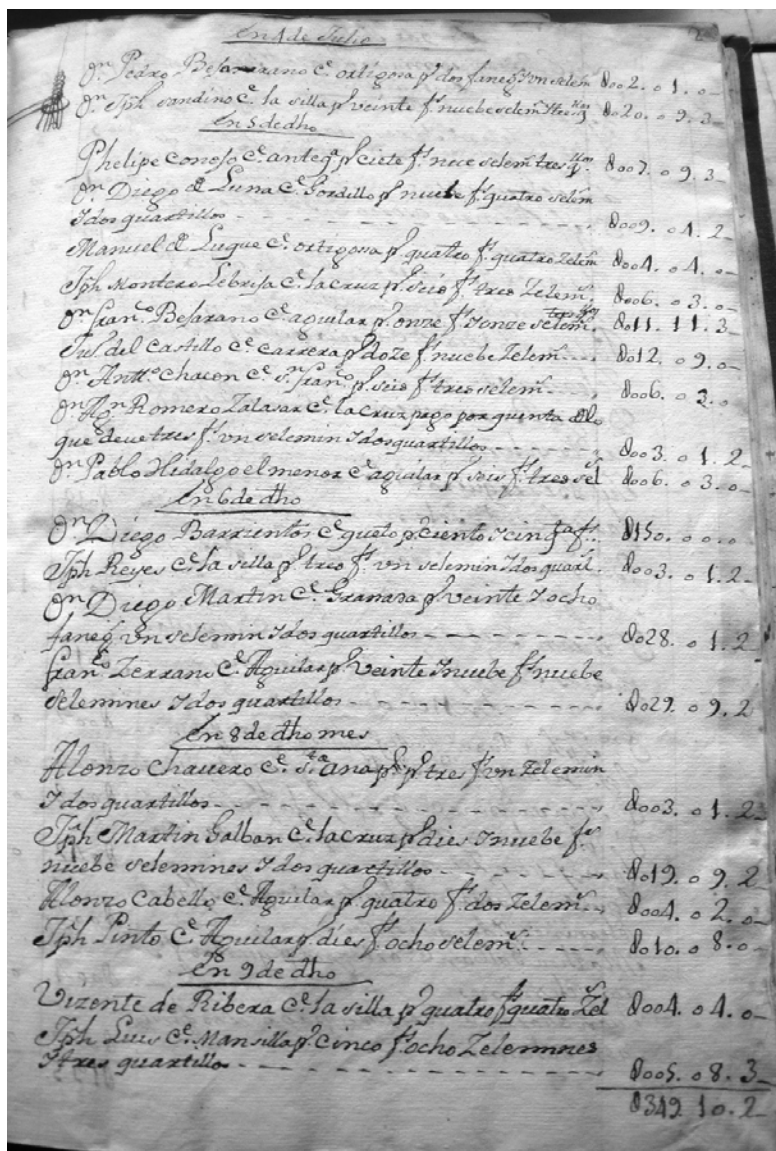 En 4 de Julio
2
Dn. Pedro Besarano Ce. ortigosa pr. dos faneg. Y vn selem 8002. o 1. o
Dn. Jph. sandino Ce. la silla pr. veinte fs. nuebe selem Y tres 8020. o 9. 3
En 5 de dho
Phelipe Conejo Ce. anteqa. pr. ciete fs. nueve selem tres 8007. o 9. 3
Dn. Diego de Luna Ce. Gordillo pr. nuebe fs. quatro selem
Y dos quartillos 8009. o 4. 2
Manuel de Luque Ce. ortigosa pr. quatro fs. quatro Zelem 8004. o 4. o
Jph Montero Lebrija Ce. la cruz pr. seis fs. tres Zelem. 8006. o 3. o
Dn. franco. Besarano Ce. aguilar pr. onze fs. Y onze selem. 8011. 11. 3
Ju. del Castillo Ce. Carrera pr. doze fs. nuebe Zelem 8012. o 9. o
Dn. Antto. Chacon Ce. Sn. franco. pr. seis fs. tres selem 8006. o 3. o
Dn. Agn. Romero Zalasar Ce. la cruz pago por quenta delo
que deve tres fs. vn selemin Y dos quartillos 8003. o 1. 2
Dn. Pablo Hidalgo el menor Ce. aguilar pr. seis fs. tres sel 8006. o 3. o
En 6 de dho
Dn. Diego Barrientos Ce. queto pr. ciento Y cinqta. fs. 8150. o o. o
Jph Reyes Ce. la silla pr. tres fs. vn selemin Y dos quart. 8003. o 1. 2
Dn. Diego Martin Ce. Granada pr. veinte Y ocho
faneg. vn selemin Y dos quartillos 8028. o 1. 2
franco. Zerrano Ce. Aguilar pr. Veinte Y nuebe fs. nuebe
Selemines Y dos quartillos 8029. o 9. 2
En 8 de dho mes
Alonzo Chavero Ce. Sta. ana pr. tres fs. vn Zelemin
Y dos quartillos 8003. o 1. 2
Jph Martin Galban Ce. la cruz pr. dies Y nuebe fs.
nuebe selemines Y dos quartillos 8019. o 9. 2
Alonzo Cabello Ce. Aguilar pr. quatro fs. dos Zelem. 8004. o 2. o
Jph Pinto Ce. Aguilar pr. dies fs. ocho selem. 8010. o 8. o
En 9 de dho
Vizente de Ribera Ce. la silla pr. quatro fs. quatro Zel 8004. o 4. o
Jph Luis Ce. Mansilla pr. Cinco fs. ocho Zelemines
Y tres quartillos 8005. o 8. 3
8349. 10. 2